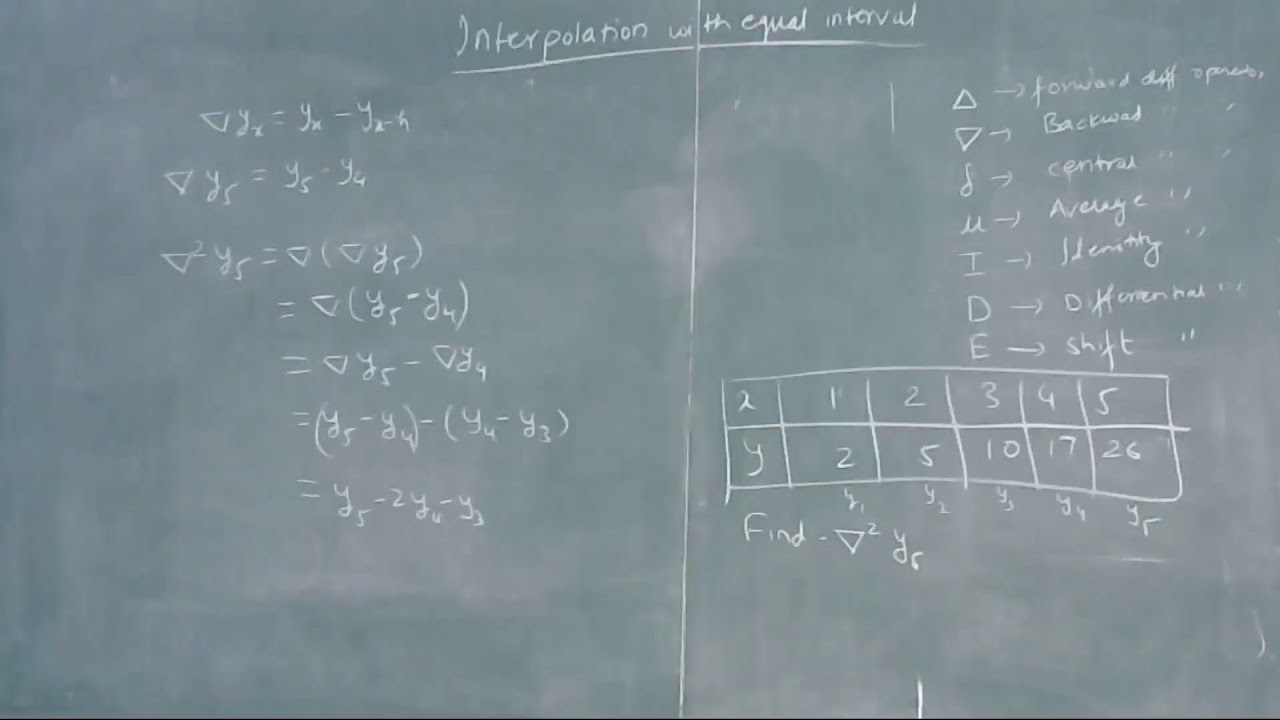 Interpolation with equal interval
∇y_x = y_x - y_{x-h}
∇y_5 = y_5 - y_4
∇²y_5 = ∇(∇y_5)
= ∇(y_5 - y_4)
= ∇y_5 - ∇y_4
= (y_5 - y_4) - (y_4 - y_3)
= y_5 - 2y_4 - y_3
Δ → forward diff
∇ → Backwad " "
δ → central " "
μ → Average "
I → Identity "
D → Differential "
E → shift "
x 1 2 3 4 5
y 2 5 10 17 26
y_1 y_2 y_3 y_4 y_5
Find - ∇² y_5